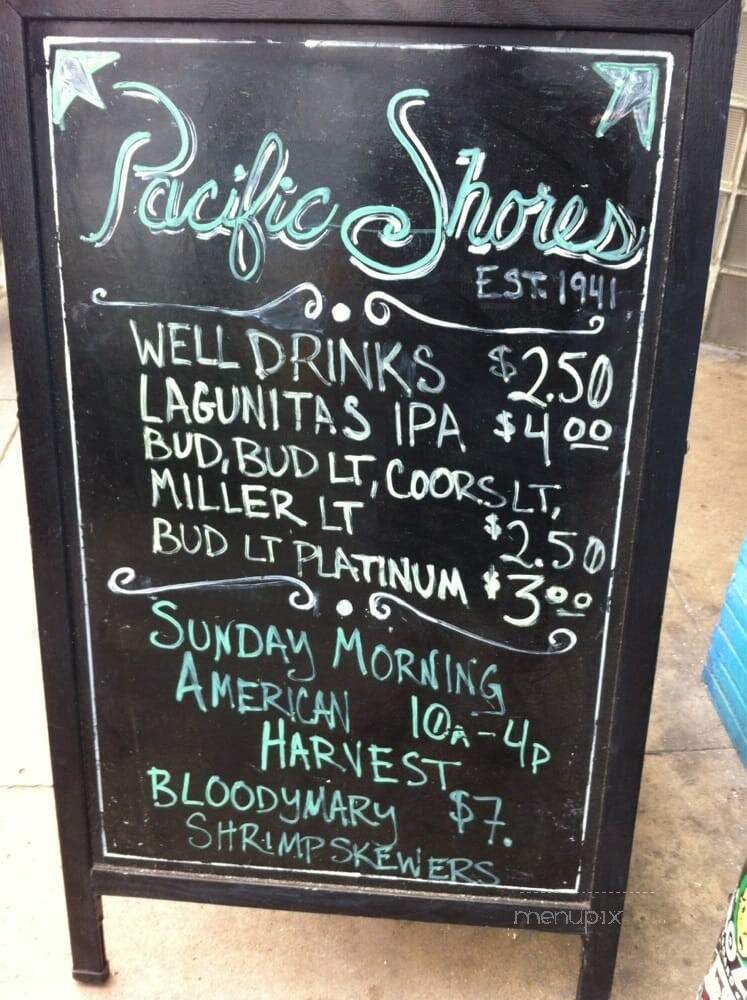 Pacific Shores
EST. 1941
WELL DRINKS $2.50
LAGUNITAS IPA $4.00
BUD, BUD LT, COORS LT,
MILLER LT $2.50
BUD LT PLATINUM $3.00
SUNDAY MORNING
AMERICAN 10A-4P
HARVEST
BLOODYMARY $7.
SHRIMP SKEWERS
menupix